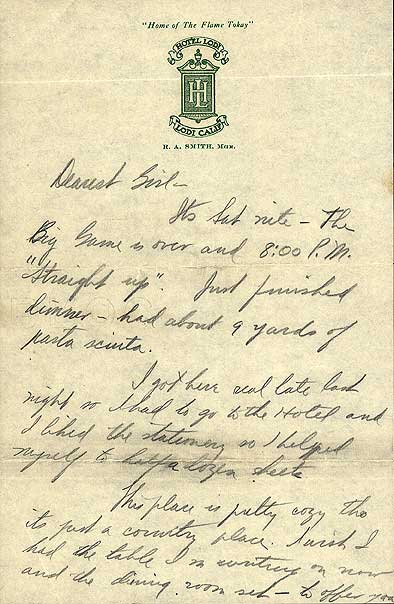 "Home of The Flame Tokay"
HOTEL LODI
HL
LODI CALIF
R. A. SMITH, MGR.
Dearest Girl -
Its Sat nite - The
Big Game is over and 8:00 P.M.
"Straight up". Just finished
dinner - had about 9 yards of
pasta sciuta.
I got here real late last
night so I had to go to the Hotel and
I liked the stationery so I helped
myself to half a dozen sheets
This place is pretty cozy tho
its just a country place. I wish I
had the table I'm writing on now
and the dining room set - to offer you